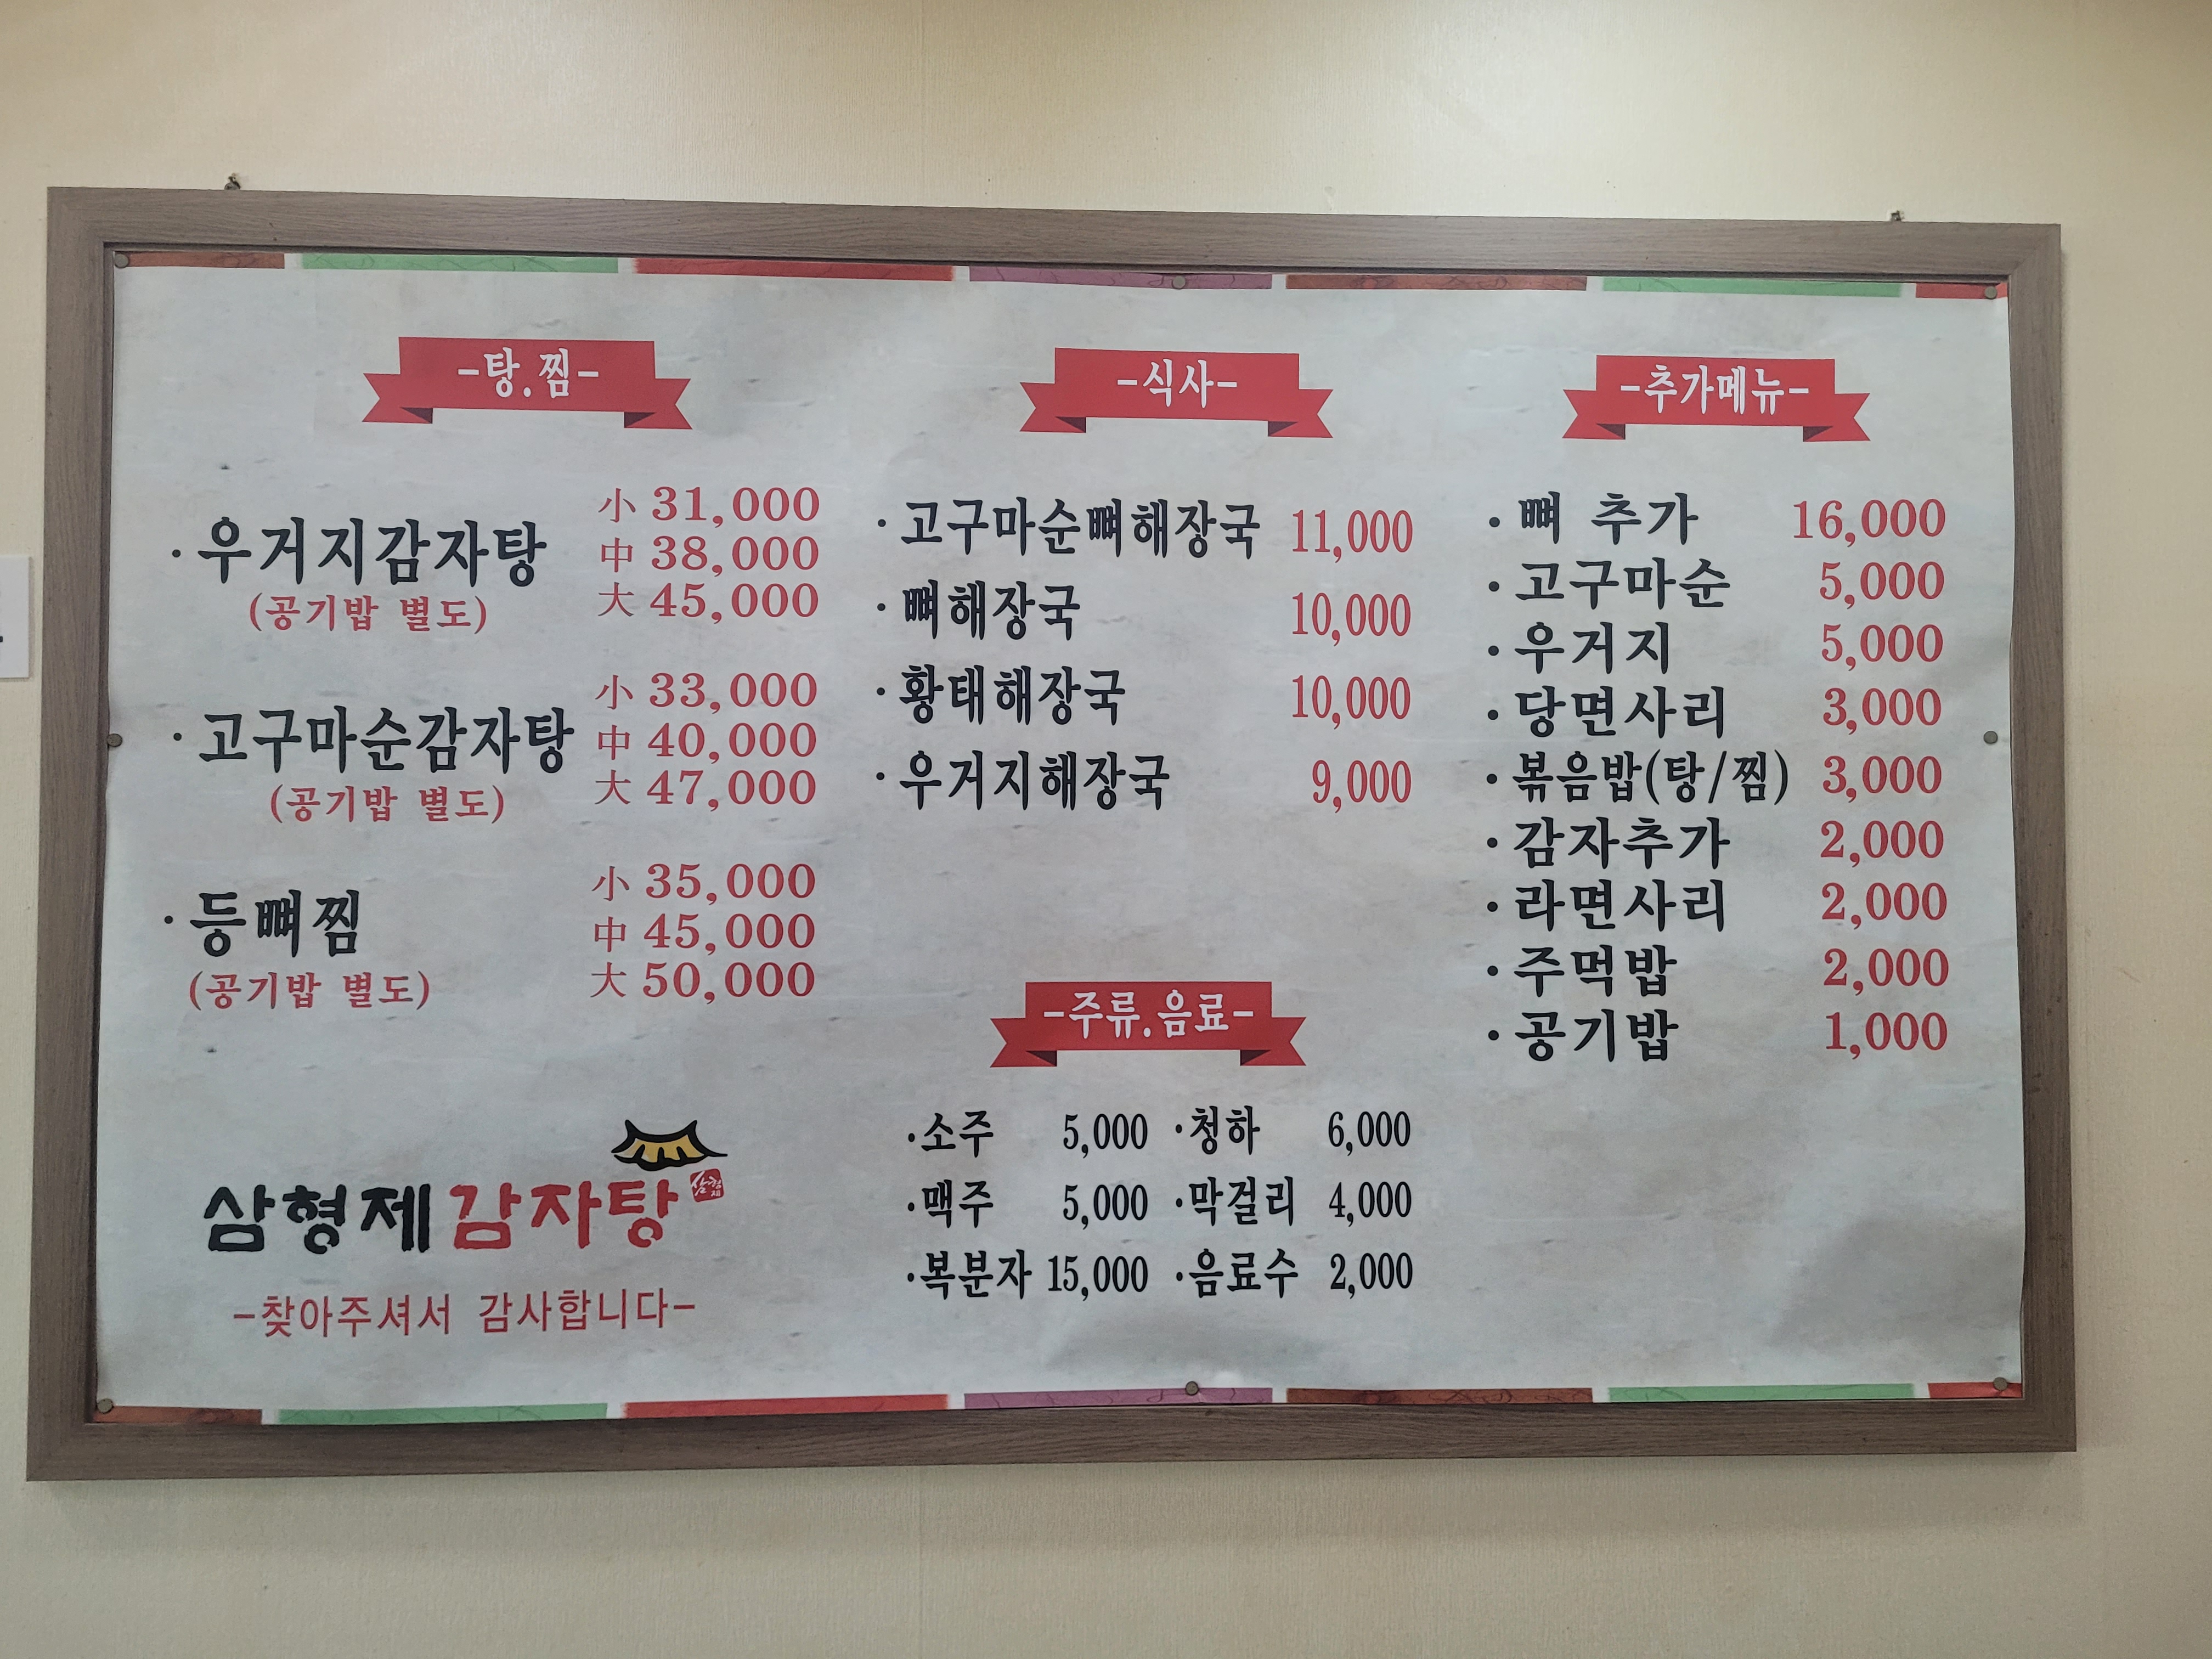 -탕.찜-
·우거지감자탕
(공기밥 별도)
小 31,000
中 38,000
大 45,000
·고구마순감자탕
(공기밥 별도)
小 33,000
中 40,000
大 47,000
·등뼈찜
(공기밥 별도)
小 35,000
中 45,000
大 50,000
삼형제감자탕
삼형제
-찾아주셔서 감사합니다-
-식사-
·고구마순뼈해장국 11,000
·뼈해장국 10,000
·황태해장국 10,000
·우거지해장국 9,000
-주류.음료-
·소주 5,000 ·청하 6,000
·맥주 5,000 ·막걸리 4,000
·복분자 15,000 ·음료수 2,000
-추가메뉴-
·뼈 추가 16,000
·고구마순 5,000
·우거지 5,000
·당면사리 3,000
·볶음밥(탕/찜) 3,000
·감자추가 2,000
·라면사리 2,000
·주먹밥 2,000
·공기밥 1,000